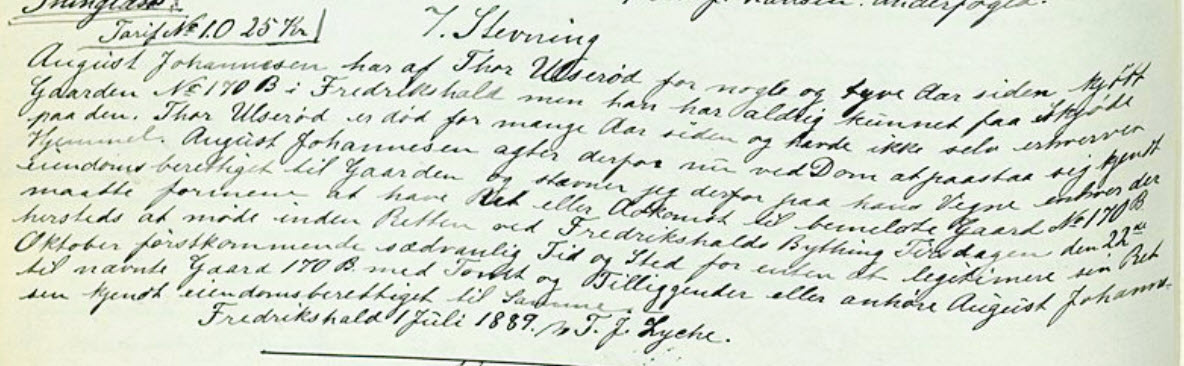 Thinglæst
Tarif № 10 25 Kr
7. Stevning
August Johannesen har af Thor Ulserød for nogle og tyve Aar siden kjøbt
Gaarden № 170 B i Fredrikshald men han har aldrig kunnet faa Skjøde
paa den. Thor Ulserød er død for mange Aar siden og havde ikke selv erhvervet
Hjemmel. August Johannesen agter derfor nu ved Dom at paastaa sig kjendt
eiendomsberettiget til Gaarden og stævner jeg derfor paa hans Vegne enhver der
maatte formene at have Ret eller Adkomst til bemeldte Gaard № 170 B
hersteds at møde inden Retten ved Fredrikshalds Bything Tirsdagen den 22de
Oktober førstkommende sædvanlig Tid og Sted for enten at legitimere sin Ret
til nævnte Gaard 170 B. med Tomt og Tilliggender eller anhøre August Johanne-
sen kjendt eiendomsberettiget til Samme.
Fredrikshald 1 Juli 1889. T. J. Lyche.